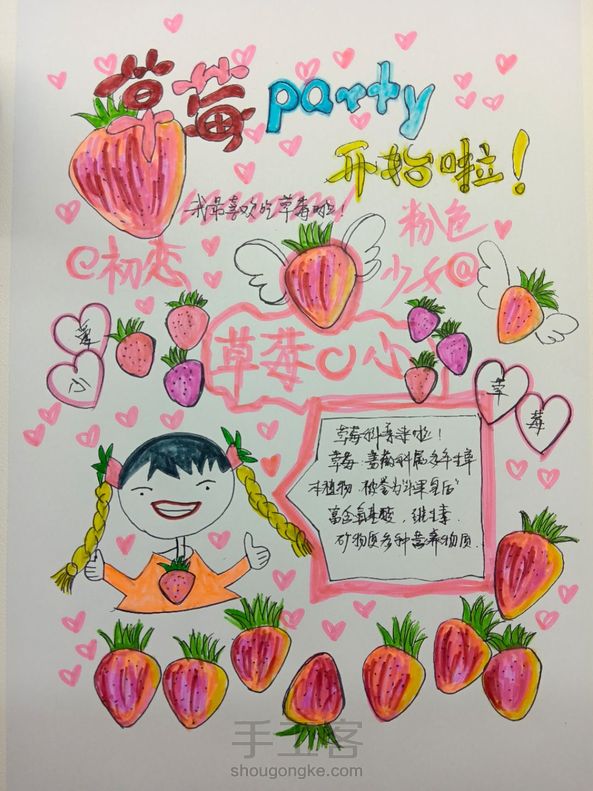 草莓 party
开始啦！
我最喜欢的草莓啦！
粉色
@初恋
少女@
草莓 小
小
草
莓
草莓科普来啦！
草莓：蔷薇科属多年生草
本植物，被誉为“水果皇后”
富含氨基酸，维生素
矿物质多种营养物质.
手工客
shougongke.com